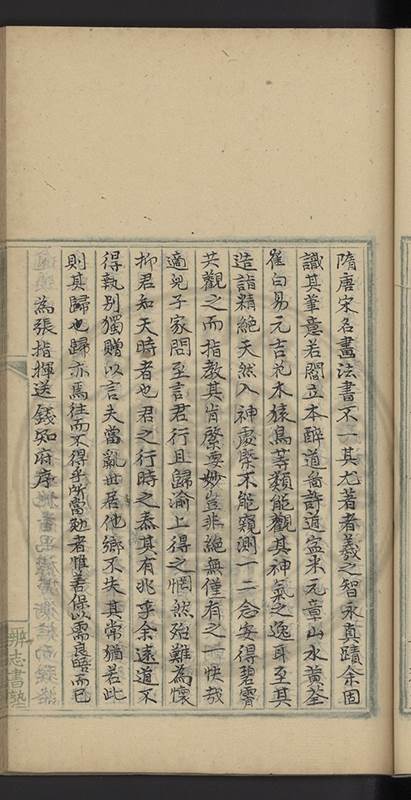 隋唐宋名畫法書不一其尤著者羲之智永真蹟余固
識其筆意若閻立本醉道啚許道寕米元章山水黄筌
崔白易元吉花木猿鳥等類能觀其神氣之逸耳至其
造詣精絶天然入神處槩不能窺測一二念安得碧霄
共觀之而指教其肯綮要妙豈非絶無僅有之一快哉
適兒子家問至言君行且歸渝上得之惘然殆難為懷
抑君知天時者也君之行時之泰其有兆乎余遠道不
得執别獨贈以言夫當亂世居他鄉不失其常猶若此
則其歸也歸亦焉往而不得乎所當勉者惟善保以需良晤而已
為張指揮送錢知府序
辨志書塾